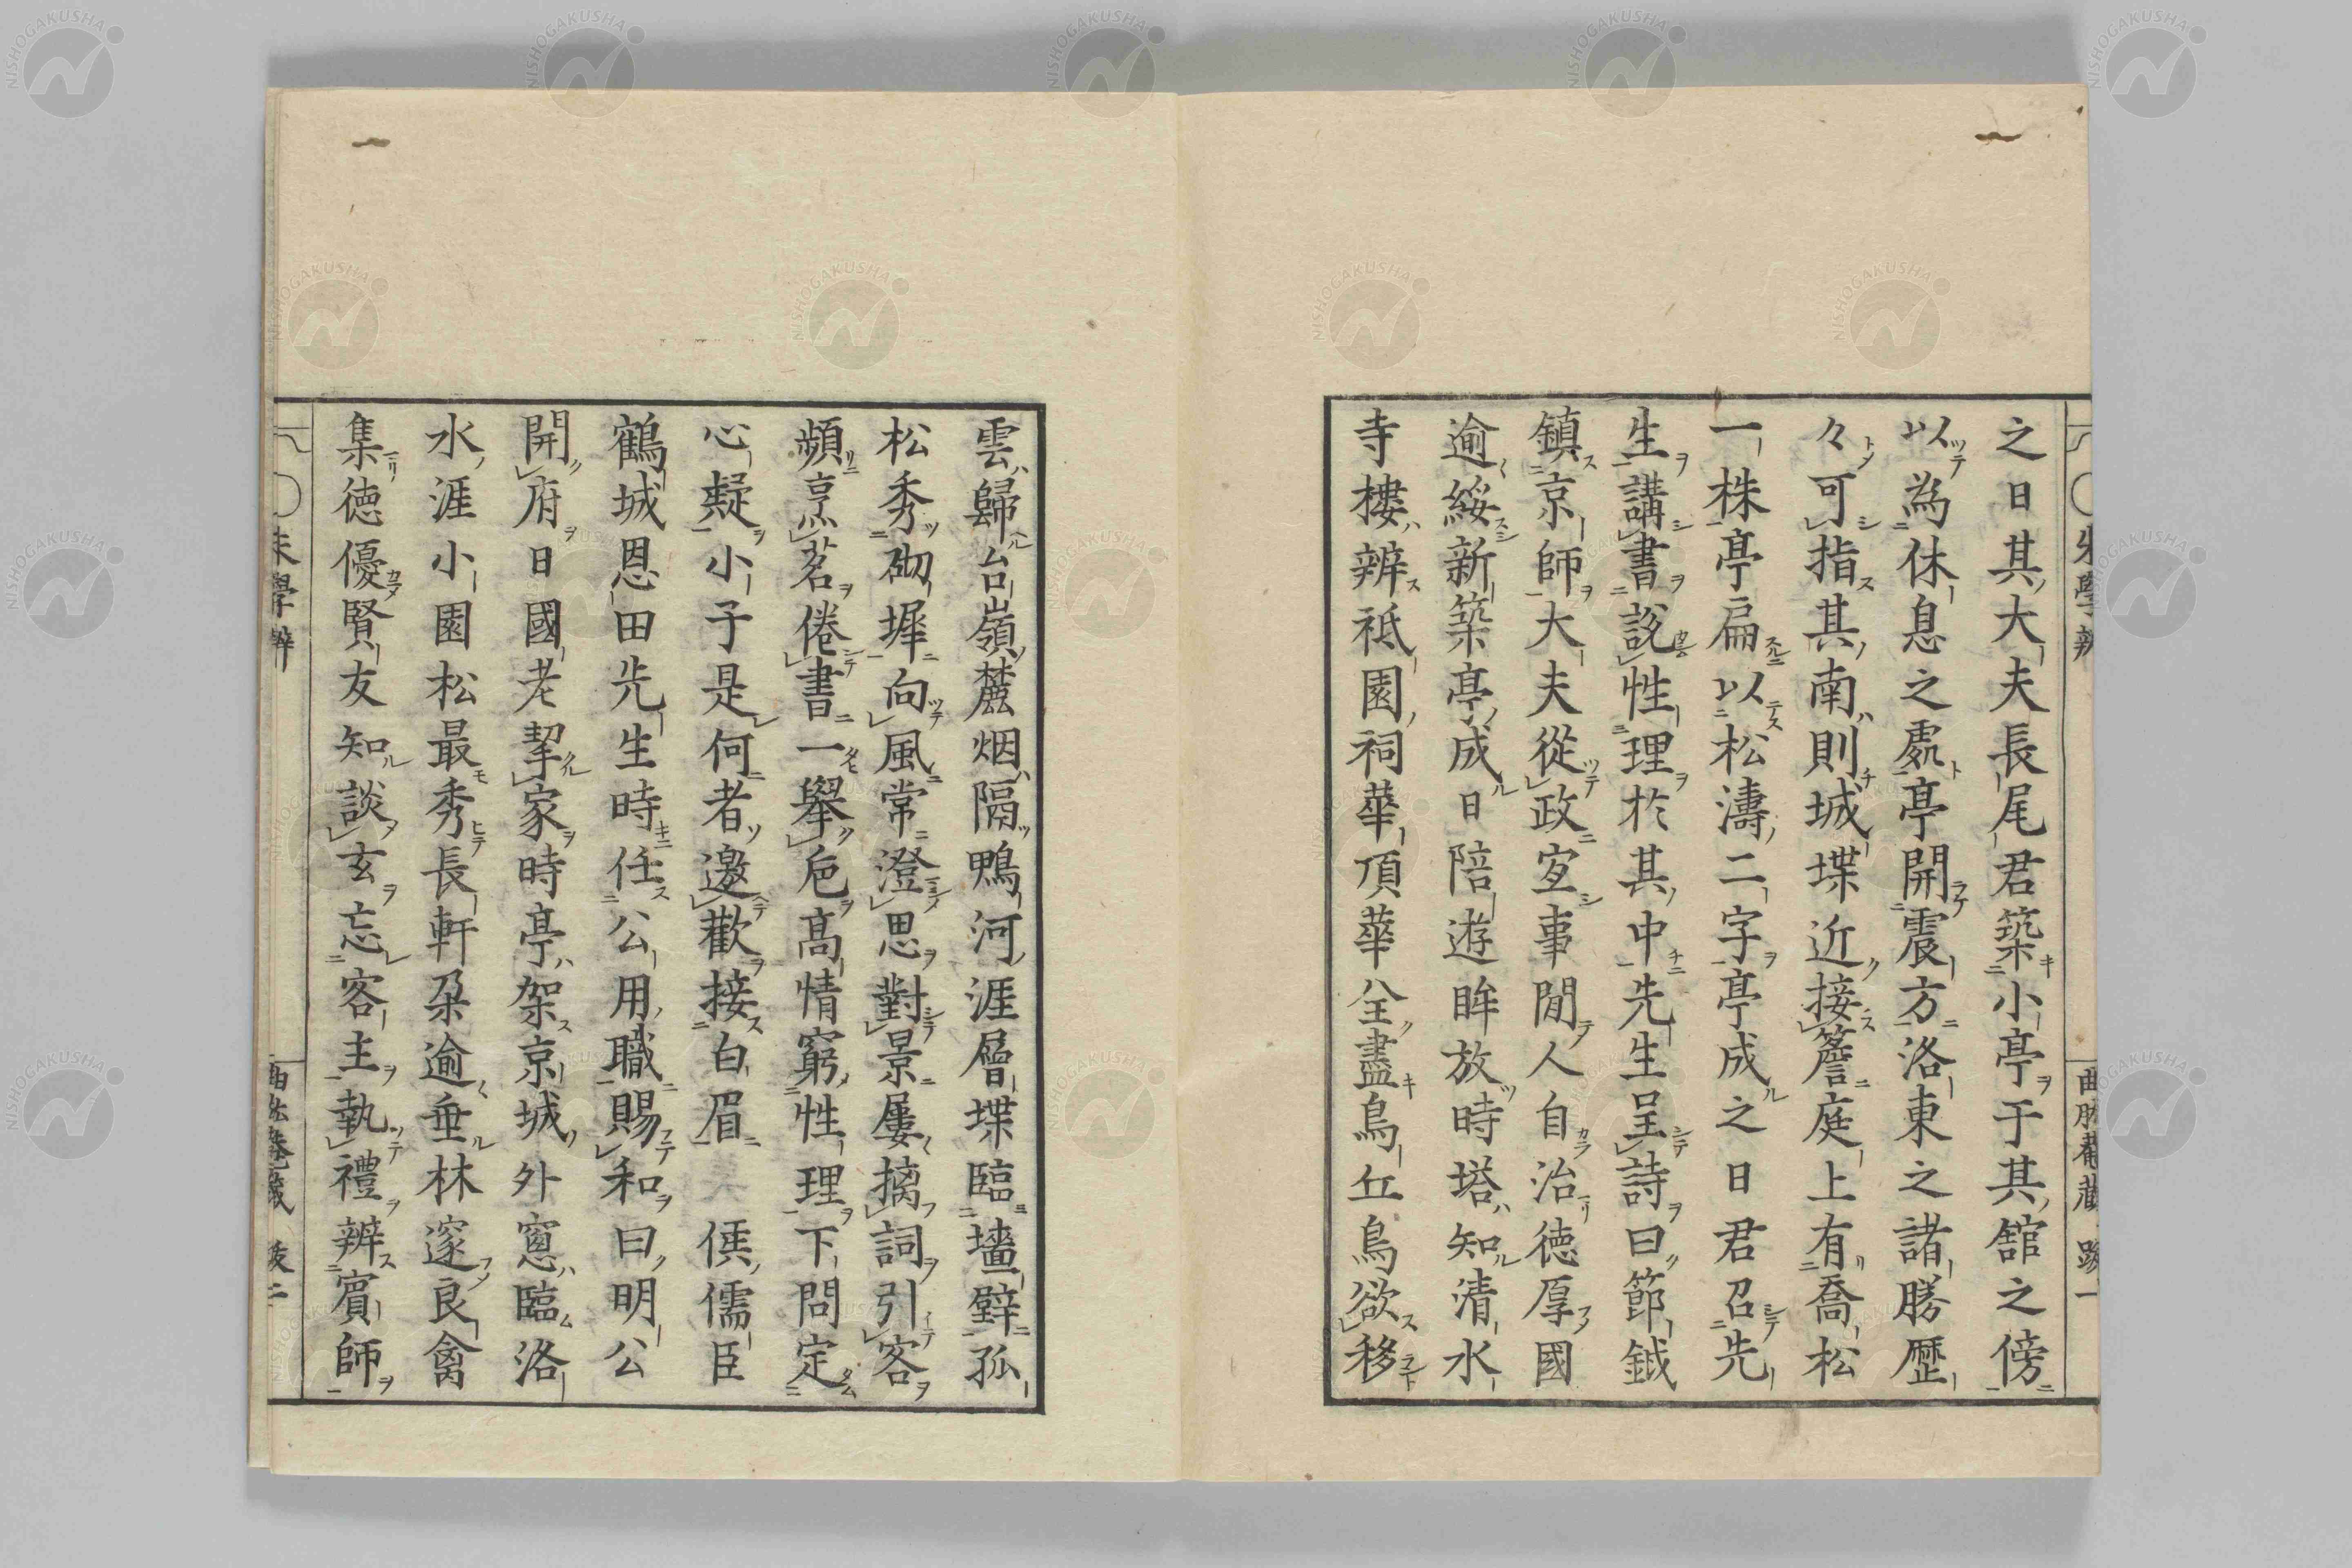 之日其大夫長尾君築小亭于其舘之傍
以為休息之處亭開震方洛東之諸勝歷
々可指其南則城堞近接簷庭上有喬松
一株亭扁以松濤二字亭成之日君召先
生講書說性理於其中先生呈詩曰節鉞
鎮京師大夫從政寔事閒人自治徳厚國
逾綏新築亭成日陪遊眸放時塔知清水
寺樓辨祇園祠華頂華全盡鳥丘鳥欲移
雲歸台嶺麓烟隔鴨河涯層堞臨墻壁孤
松秀砌墀向風常澄思對景屢摛詞引客
頻烹茗倦書一舉巵高情窮性理下問定
心疑小子是何者邀歡接白眉 傼儒臣
鶴城恩田先生時任公用職賜和曰明公
開府日國老挈家時亭架京城外窻臨洛
水涯小園松最秀長軒朶逾垂林邃良禽
集徳優賢友知談玄忘客主執禮辨賓師
朱學辨